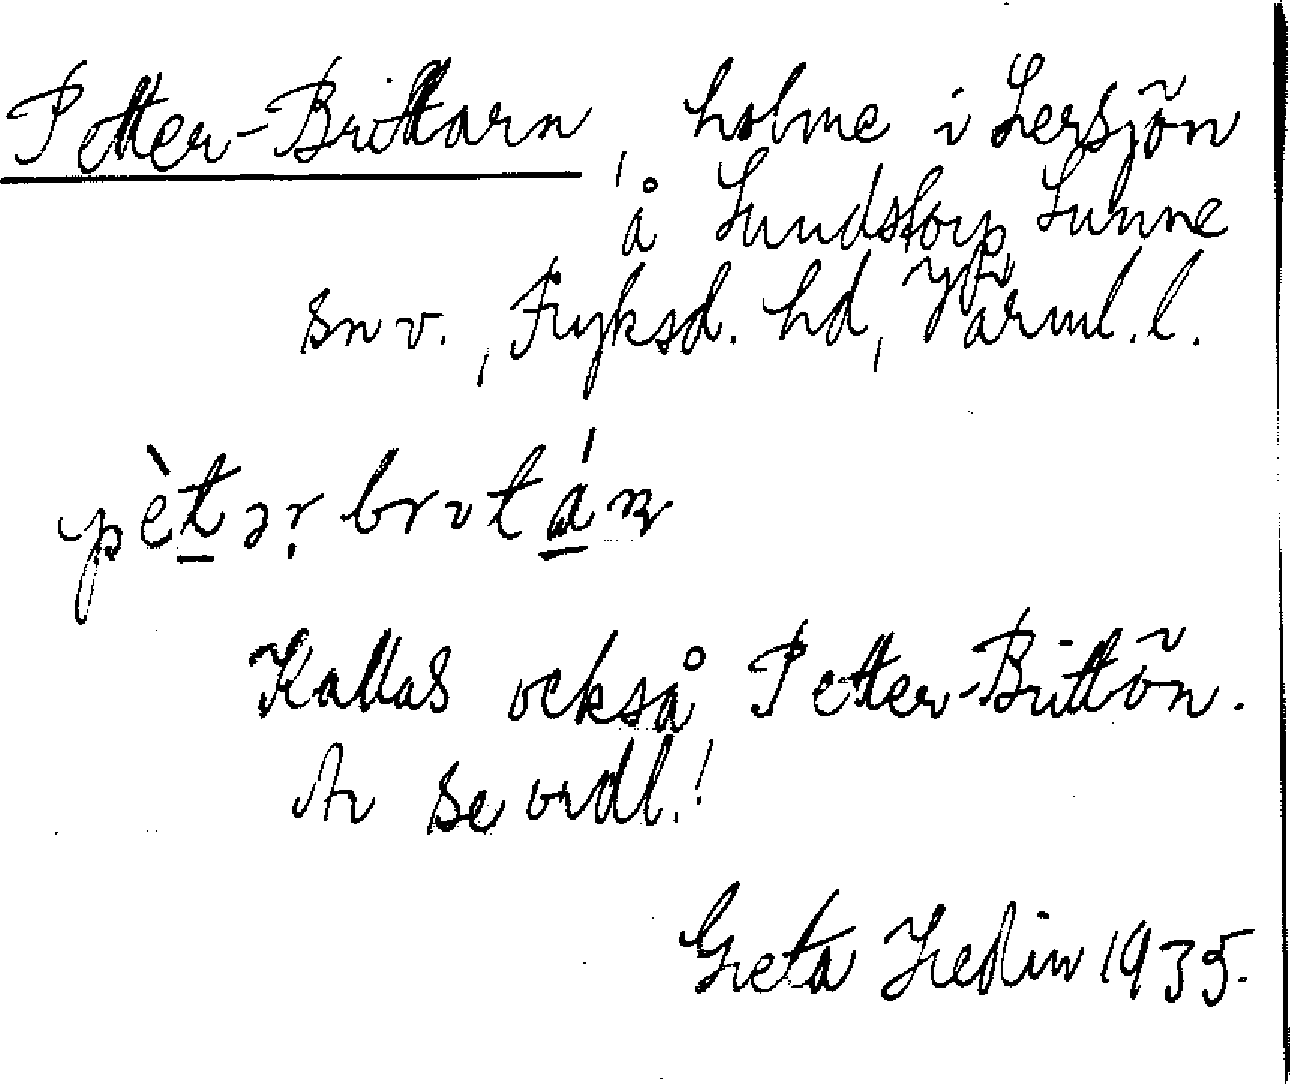 Petter-Brittarn, holme i Lersjön
å Lundstorp, Sunne
sn v., Fryksd. hd, Värml. l.
pèt̲ər̤ brɩtá̲n
Kallas också Petter-Brittön.
se ordl.!
Greta Hedin 1935.